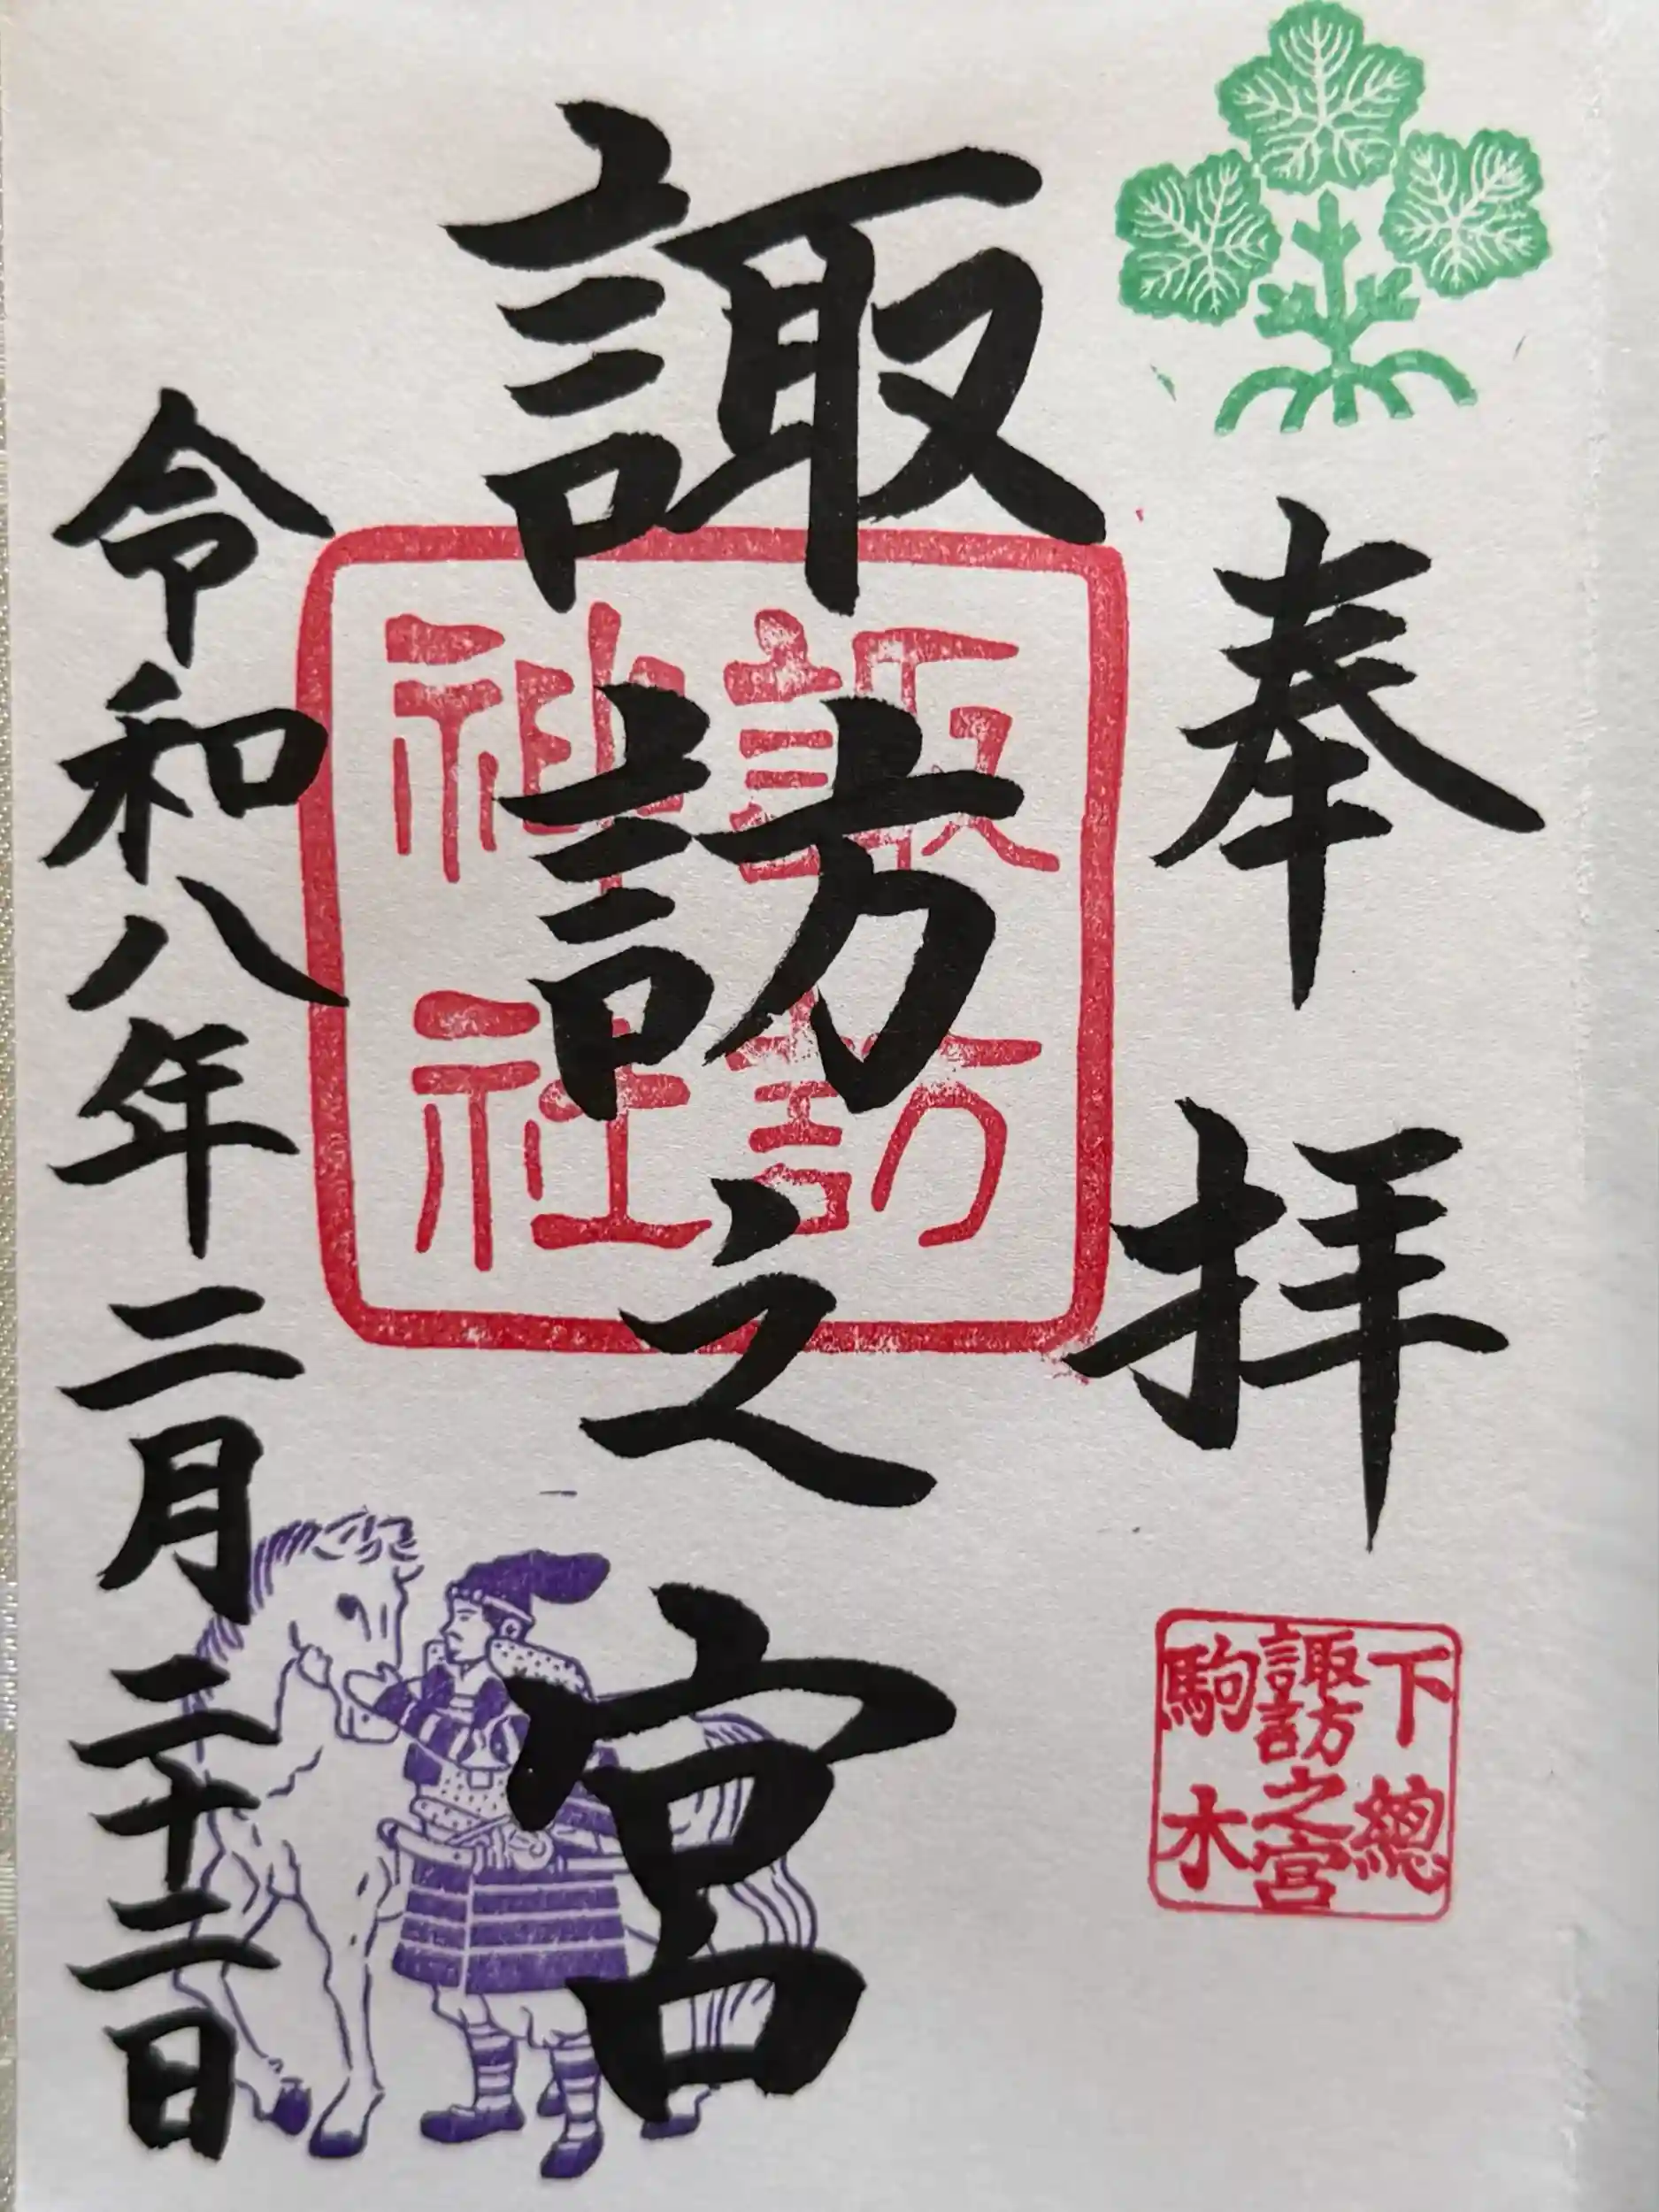 奉拝
下總
諏訪之宮
駒木
諏訪之宮
諏訪
神社
令和八年二月二十二日